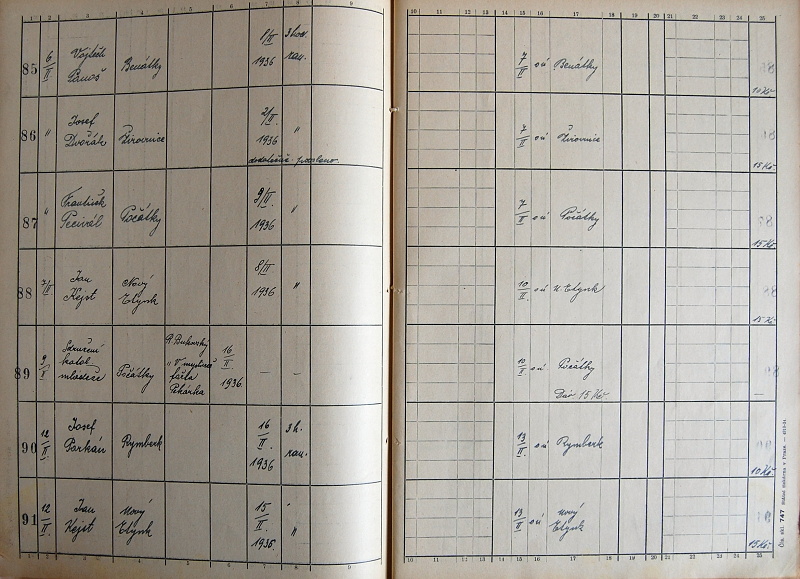 2 3 4 5 6 7 8 9
85 6/II Vojtěch Benátky 8/II 3 hod.
Panoš 1936 ran.
86 " Josef Žirovnice 2/II "
Dvořák 1936
dodatečně posláno.
87 " František Počátky 9/II "
1936
88 7/II Jan Nový 8/II "
Kejst Etynk 1936
89 9/II Sdružení Počátky 16/II — —
katol. 1936
mládeže
90 12/II Josef Rymberk 16/II 3 h.
Parkán 1936 ran.
91 12/II Jan Nový 15/II "
Kejst Etynk 1935.
1 2 3 4 5 6 7 8 9
10 11 12 13 14 15 16 17 18 19 20 21 22 23 24 25
7/II oú Benátky 10 Kč
7/II oú Žirovnice 15 Kč.
7/II oú Počátky 15 Kč.
10/II oú N. Etynk 15 Kč.
10/II oú Počátky —
Dar 15 Kč.
13/II oú Rymberk 10 Kč
13/II oú Nový 15 Kč.
Etynk
10 11 12 13 14 15 16 17 18 19 20 21 22 23 24 25
Čís. skl. 747 Státní tiskárna v Praze.